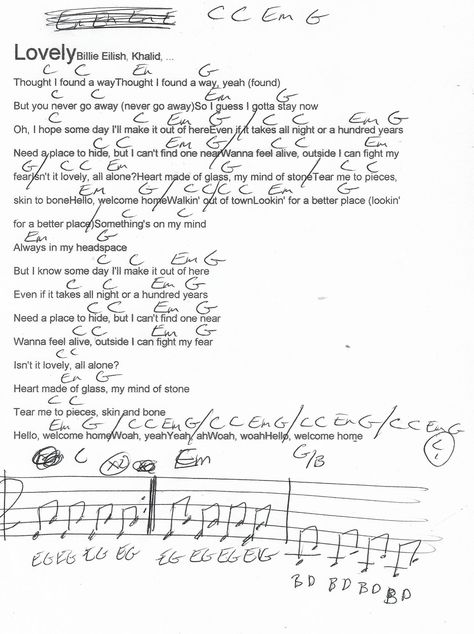 C C Em G
Lovely Billie Eilish, Khalid, ...
C C Em G
Thought I found a wayThought I found a way, yeah (found)
C C Em G
But you never go away (never go away)So I guess I gotta stay now
C C Em G / C C Em G
Oh, I hope some day I'll make it out of hereEven if it takes all night or a hundred years
C C Em G / C C Em
Need a place to hide, but I can't find one nearWanna feel alive, outside I can fight my
G / C C Em G / C C
fearIsn't it lovely, all alone?Heart made of glass, my mind of stoneTear me to pieces,
Em G / C C / C C Em G
skin to boneHello, welcome homeWalkin' out of townLookin' for a better place (lookin'
C C
for a better place)Something's on my mind
Em G
Always in my headspace
C C Em G
But I know some day I'll make it out of here
C C Em G
Even if it takes all night or a hundred years
C C Em G
Need a place to hide, but I can't find one near
C C Em G
Wanna feel alive, outside I can fight my fear
C C
Isn't it lovely, all alone?
Em G
Heart made of glass, my mind of stone
C C
Tear me to pieces, skin and bone
Em G / C C Em G / C C Em G / C C Em G / C C Em G
Hello, welcome homeWoah, yeahYeah, ahWoah, woahHello, welcome home
C X2 Em G/B C
EG EG EG EG EG EG EG EG
BD BD BD BD